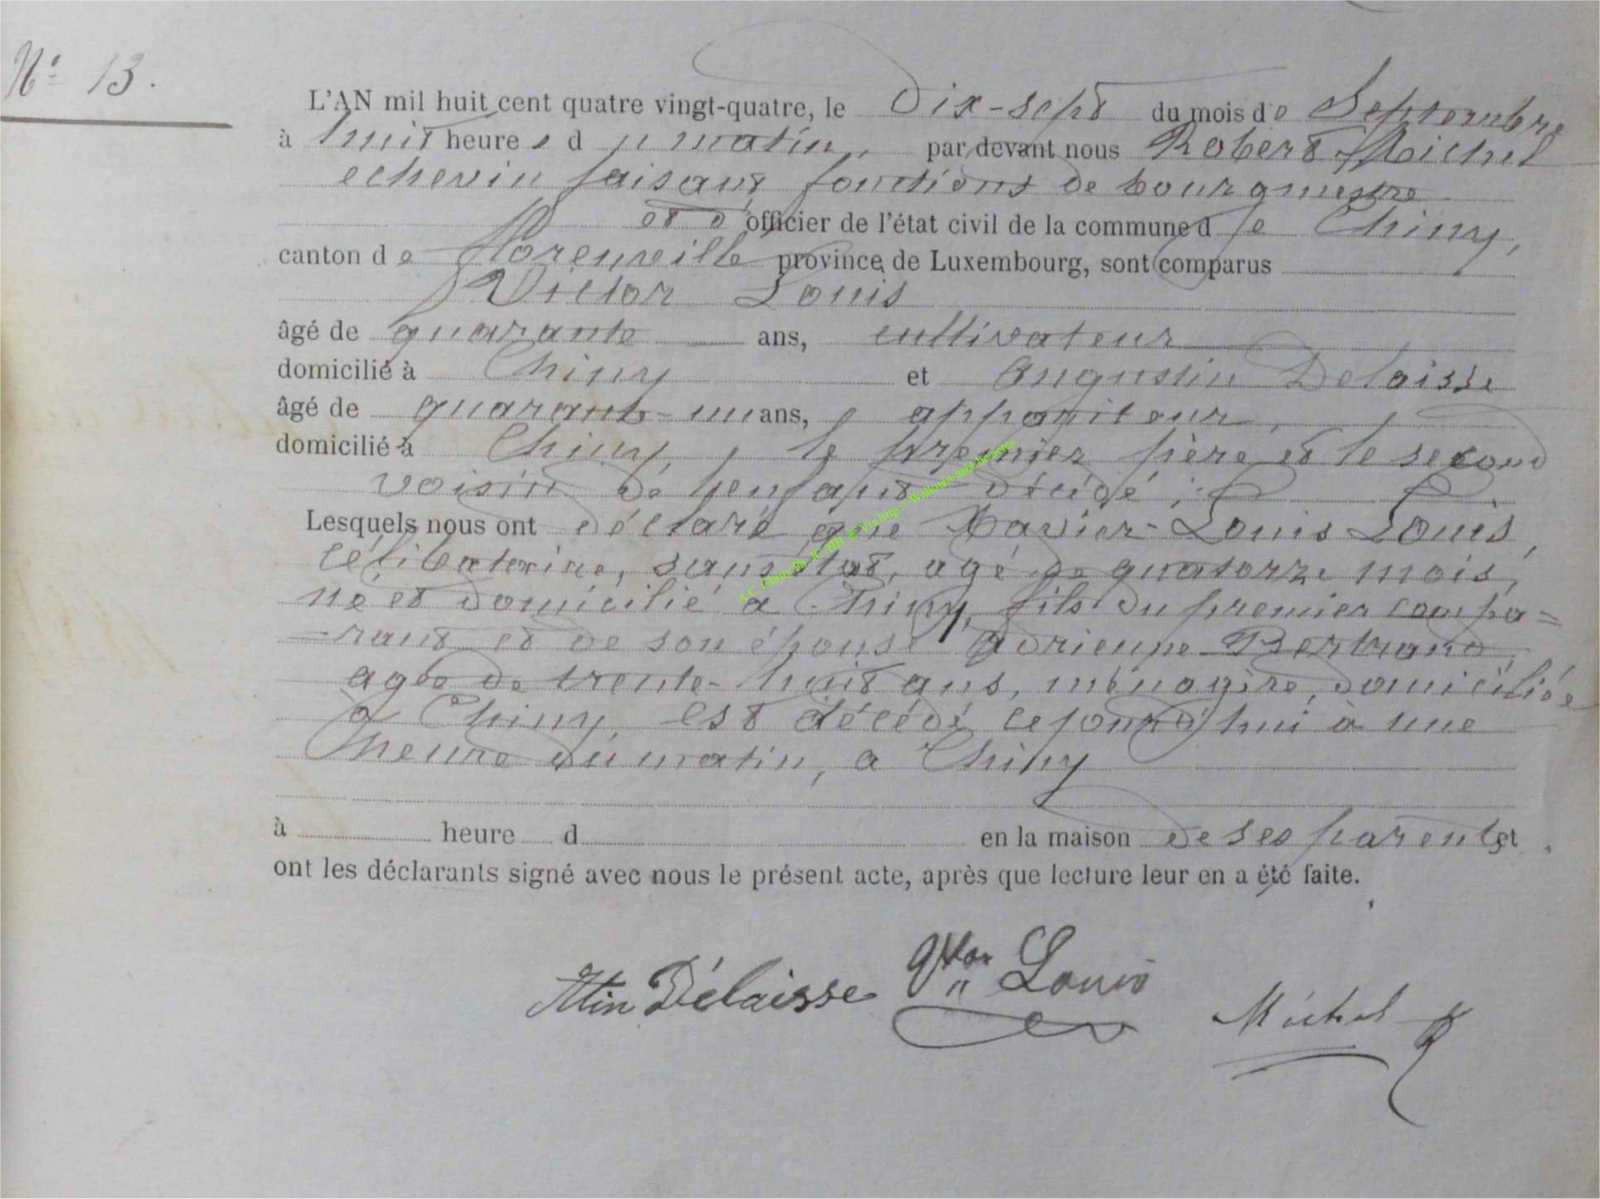 N° 13.
L'AN mil huit cent quatre vingt-quatre, le Dix-sept du mois de Septembre
à huit heures du matin, par devant nous Robert Michel
echevin faisant fonctions de bourgmestre
et d'officier de l'état civil de la commune de Chiny,
canton de Florenville province de Luxembourg, sont comparus
Victor Louis
âgé de quarante ans, cultivateur
domicilié à Chiny et Augustin Delaisse
âgé de quarante-un ans, appariteur,
domicilié à Chiny, le premier père et le second
voisin de l'enfant décédé ;
Lesquels nous ont déclaré que Xavier-Louis Louis,
célibataire, sans état, agé de quatorze mois,
né et domicilié à Chiny, fils du premier compa=
rant et de son épouse Adrienne Bertrand
agée de trente-huit ans, ménagère, domiciliée
à Chiny, est décédé cejourd'hui à une
heure du matin, a Chiny
à heure d en la maison de ses parents et
ont les déclarants signé avec nous le présent acte, après que lecture leur en a été faite.
Atin Délaisse Vtor Louis Michel